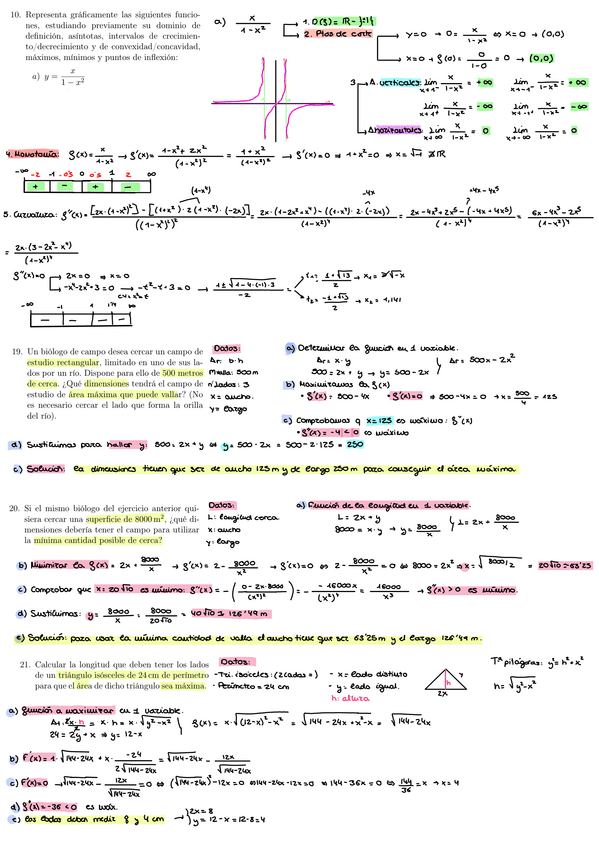 10. Representa gráficamente las siguientes funcio-
nes, estudiando previamente su dominio de
definición, asíntotas, intervalos de crecimien-
to/decrecimiento y de convexidad/concavidad,
máximos, mínimos y puntos de inflexión:
a) y = x / (1 − x²)
a) x / (1 − x²)
1. D(f) = ℝ − {±1}
2. Ptos de corte
y=0 → 0 = x / (1−x²) ⇔ x=0 → (0,0)
x=0 → f(0) = 0 / (1−0) = 0 → (0,0)
3. A. verticales:
A. horizontales:
4. Monotonía: f(x) = x / (1−x²) → f'(x) = (1−x²+2x²) / (1−x²)² = (1+x²) / (1−x²)² → f'(x)=0 ⇒ 1+x²=0 ⇒ x=√−1 ∄ ℝ
-∞ -2 -1 -0'5 0 0'5 1 2 ∞
5. Curvatura:
= 2x·(3−2x²−x⁴) / (1−x²)⁴
f''(x)=0 → 2x=0 ⇒ x=0
19. Un biólogo de campo desea cercar un campo de
estudio rectangular, limitado en uno de sus la-
dos por un río. Dispone para ello de 500 metros
de cerca. ¿Qué dimensiones tendrá el campo de
estudio de área máxima que puede vallar? (No
es necesario cercar el lado que forma la orilla
del río).
Datos:
Ar: b·h
Mvalla: 500m
nºlados: 3
x = ancho.
y = largo
a) Determinar la función en 1 variable.
Ar = x·y
500 = 2x + y → y = 500 − 2x
Ar = 500x − 2x²
b) Maximizamos la f(x)
• f'(x) = 500 − 4x • f'(x)=0 ⇒ 500−4x=0 → x = 500/4 = 125
c) Comprobamos q x=125 es máximo: f''(x)
• f''(x) = −4 < 0 es máximo
d) Sustituimos para hallar y: 500 = 2x+y ⇔ y = 500 − 2x = 500 − 2·125 = 250
Solución: las dimensiones tienen que ser de ancho 125m y de largo 250m para conseguir el área máxima.
20. Si el mismo biólogo del ejercicio anterior qui-
siera cercar una superficie de 8000 m², ¿qué di-
mensiones debería tener el campo para utilizar
la mínima cantidad posible de cerca?
Datos:
L: longitud cerca
x: ancho
y: largo
a) Función de la longitud en 1 variable.
L = 2x + y
8000 = x·y → y = 8000/x
L = 2x + 8000/x
b) Minimizar la f(x) = 2x + 8000/x → f'(x) = 2 − 8000/x² → f'(x)=0 ⇔ 2 − 8000/x² = 0 ⇔ 8000 = 2x² ⇒ x = √8000/2 = 20√10 ≈ 63'25
c) Comprobar que x=20√10 es mínimo: f''(x) = −((0−2x·8000)/(x²)²) = −(−16000x/(x²)²) = 16000/x³ → f''(x) > 0 es mínimo.
d) Sustituimos: y = 8000/x = 8000/20√10 = 40√10 ≅ 126'49 m
e) Solución: para usar la mínima cantidad de valla el ancho tiene que ser 63'25m y el largo 126'49 m.
21. Calcular la longitud que deben tener los lados
de un triángulo isósceles de 24 cm de perímetro
para que el área de dicho triángulo sea máxima.
Datos:
- Perímetro = 24 cm
- x = lado distinto
- y = lado igual.
h: altura
h
y
2x
y² = h² + x²
h = √y²−x²
a) función a maximizar en 1 variable.
24 = 2y + 2x ⇒ y = 12−x
f(x) = x·√(12−x)²−x² = √144−24x+x²−x = √144−24x
b) F'(x) = 1·√144−24x + x·(−24 / 2√144−24x) = √144−24x − 12x/√144−24x
c) F'(x)=0 → √144−24x − 12x/√144−24x = 0 ⇔ (√144−24x)²−12x=0 ⇔ 144−24x−12x=0 ⇔ 144−36x=0 ⇔ 144/36 = x → x=4
d) f''(x) = −36 < 0 es máx.
e) los lados deben medir 8 y 4 cm → 2x=8
y = 12−x = 12−8=4